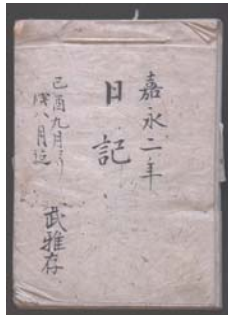 嘉永二年
日記
己酉九月より
戌八月迄
武雅存